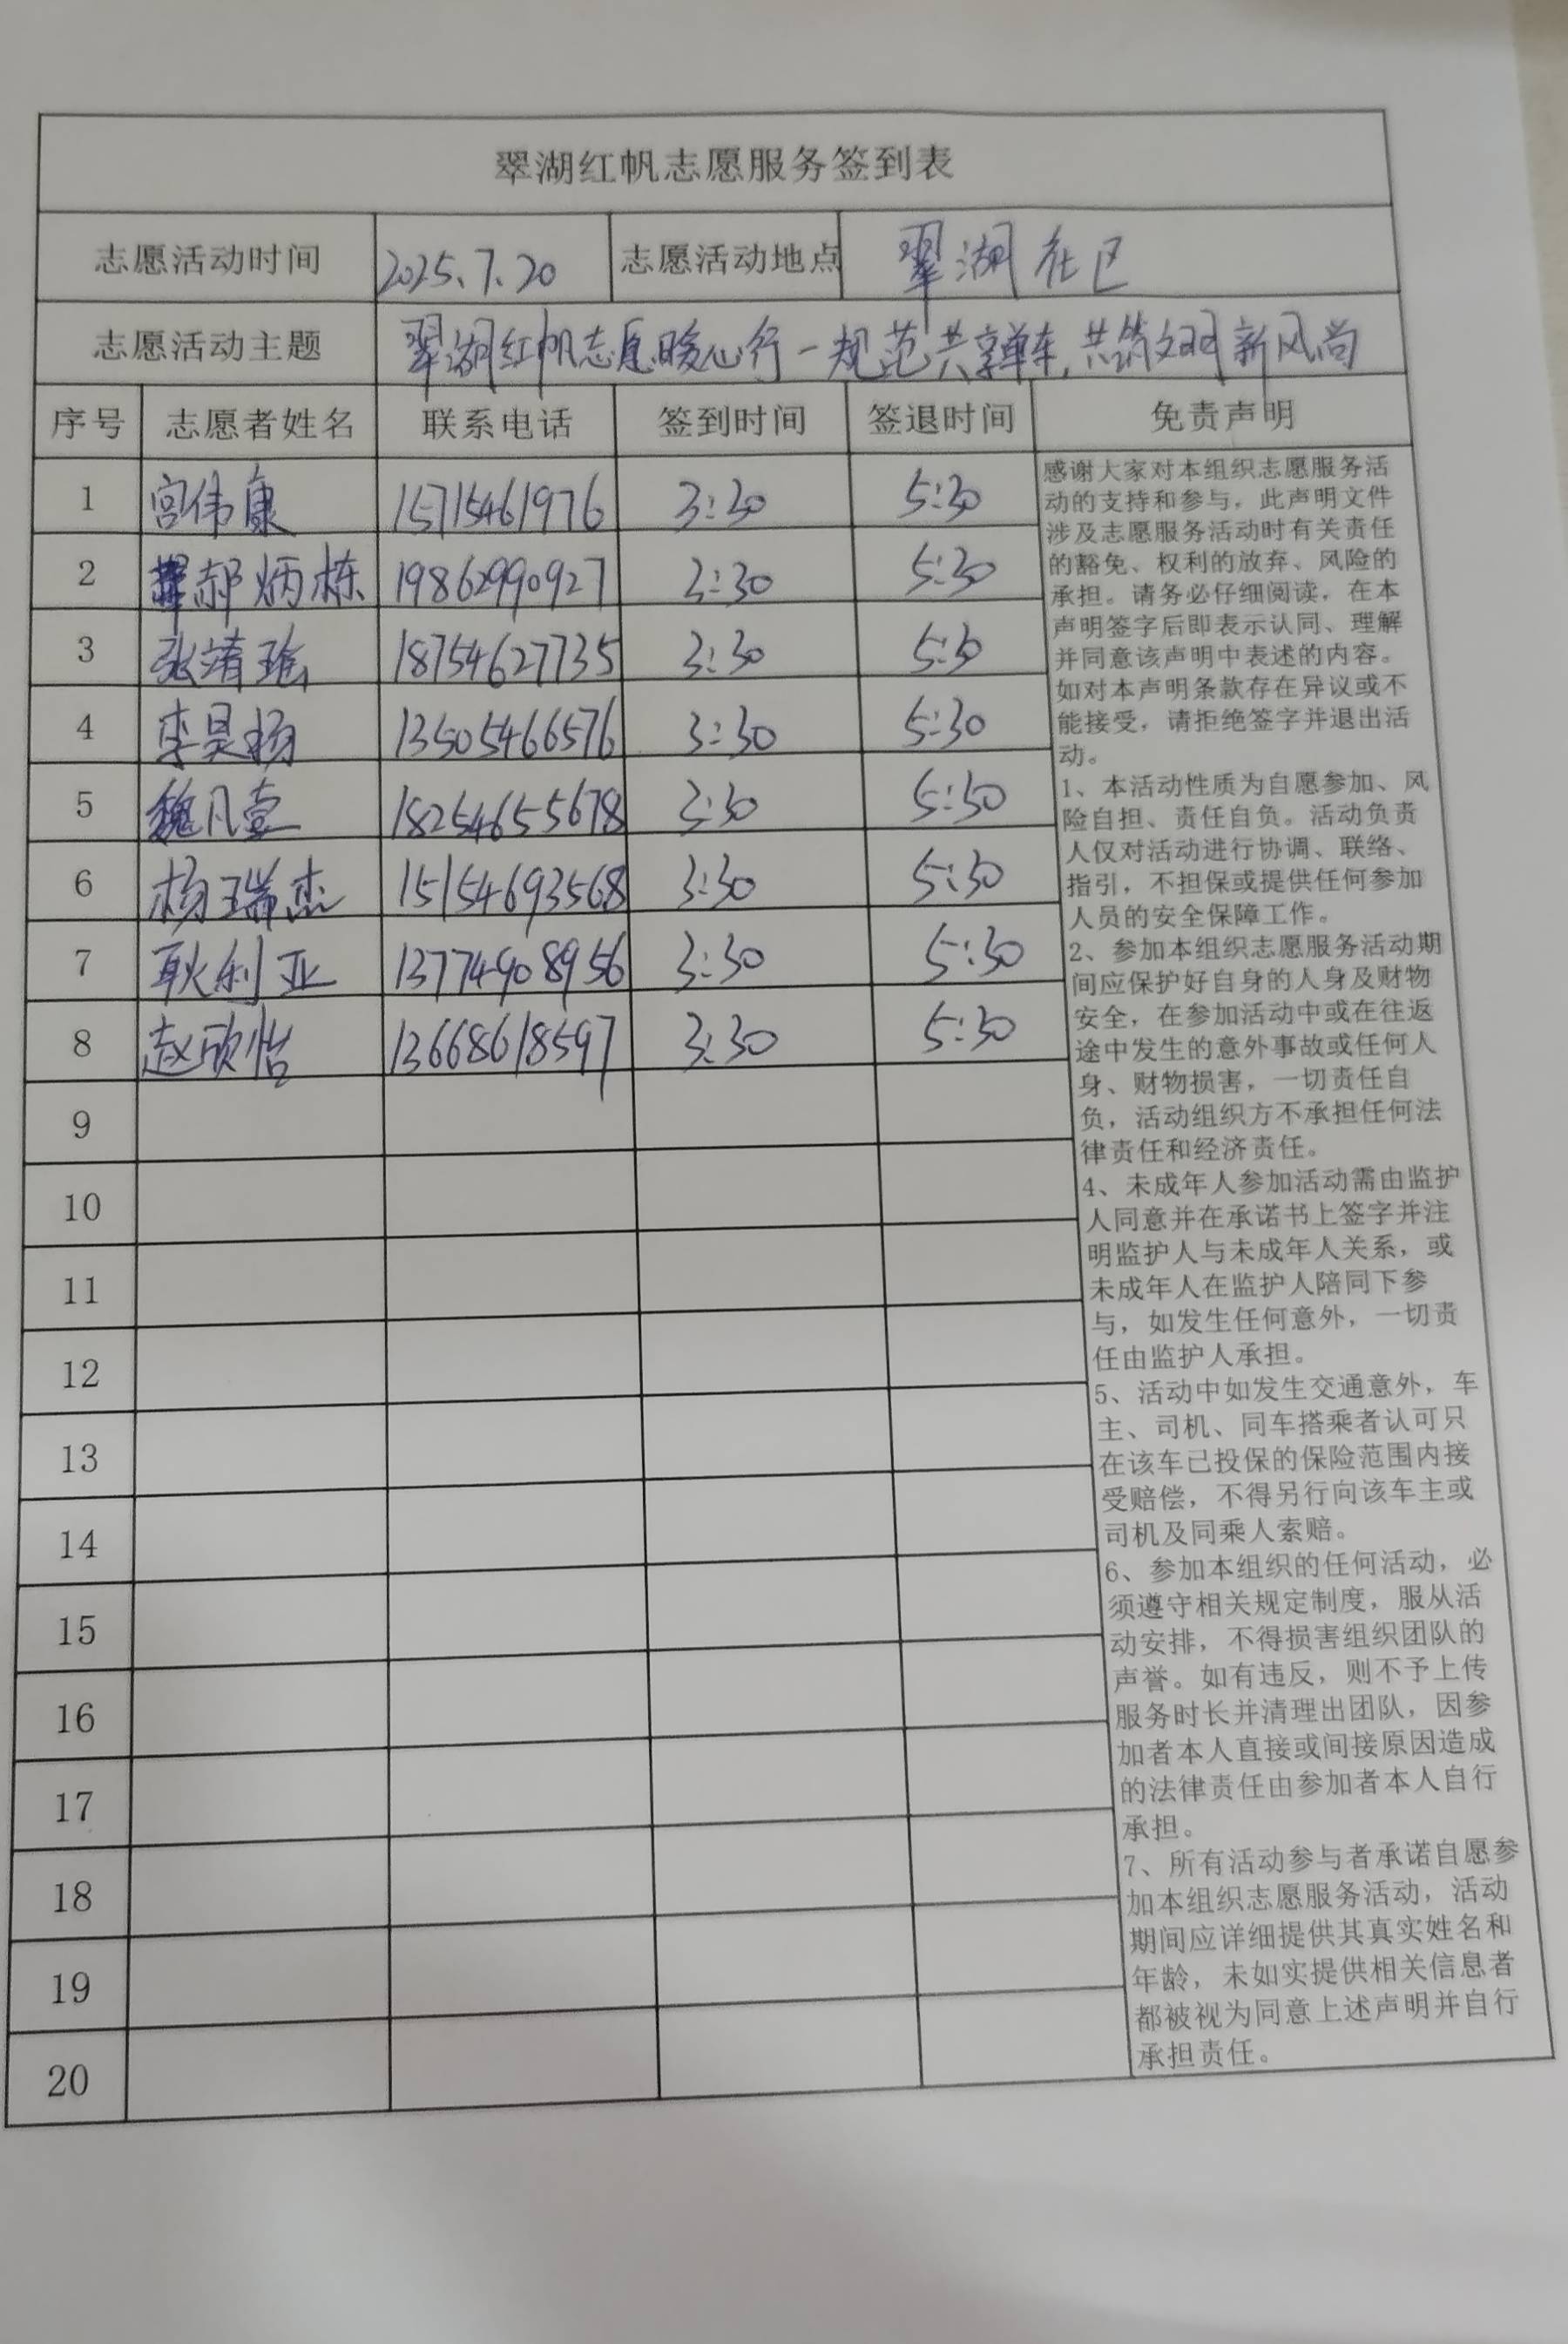 翠湖红帆志愿服务签到表
志愿活动时间 2025.7.20 志愿活动地点 翠湖社区
志愿活动主题 翠湖红帆志愿暖心行-规范共享单车,共筑文明新风尚
序号 志愿者姓名 联系电话 签到时间 签退时间 免责声明
1 宫伟康 15715461976 3:30 5:30
2 郝炳栋 19862990927 3:30 5:30
3 张清瑶 18754627735 3:30 5:30
4 李昊杨 13505466576 3:30 5:30
5 魏凡壹 18254655678 3:30 5:30
6 杨瑞杰 15154693568 3:30 5:30
7 耿利亚 13774908956 3:30 5:30
8 赵欣怡 13668618597 3:30 5:30
9
10
11
12
13
14
15
16
17
18
19
20
感谢大家对本组织志愿服务活
动的支持和参与，此声明文件
涉及志愿服务活动时有关责任
的豁免、权利的放弃、风险的
承担。请务必仔细阅读，在本
声明签字后即表示认同、理解
并同意该声明中表述的内容。
如对本声明条款存在异议或不
能接受，请拒绝签字并退出活
动。
1、本活动性质为自愿参加、风
险自担、责任自负。活动负责
人仅对活动进行协调、联络、
指引，不担保或提供任何参加
人员的安全保障工作。
2、参加本组织志愿服务活动期
间应保护好自身的人身及财物
安全，在参加活动中或在往返
途中发生的意外事故或任何人
身、财物损害，一切责任自
负，活动组织方不承担任何法
律责任和经济责任。
4、未成年人参加活动需由监护
人同意并在承诺书上签字并注
明监护人与未成年人关系，或
未成年人在监护人陪同下参
与，如发生任何意外，一切责
任由监护人承担。
5、活动中如发生交通意外，车
主、司机、同车搭乘者认可只
在该车已投保的保险范围内接
受赔偿，不得另行向该车主或
司机及同乘人索赔。
6、参加本组织的任何活动，必
须遵守相关规定制度，服从活
动安排，不得损害组织团队的
声誉。如有违反，则不予上传
服务时长并清理出团队，因参
加者本人直接或间接原因造成
的法律责任由参加者本人自行
承担。
7、所有活动参与者承诺自愿参
加本组织志愿服务活动，活动
期间应详细提供其真实姓名和
年龄，未如实提供相关信息者
都被视为同意上述声明并自行
承担责任。